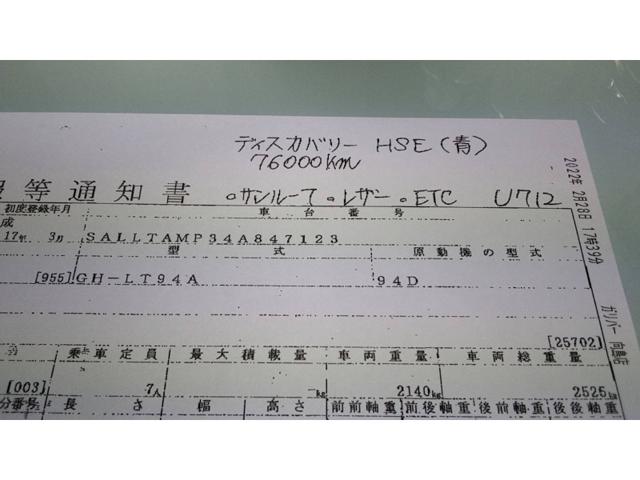 ディスカバリー HSE(青)
76000km
等通知書 ◦サンルーフ ◦レザー ◦ETC U712
初度登録年月 車台番号
成
17年 3月 SALLTAMP34A847123
型式 原動機の型式
[955] GH-LT94A 94D
[25702]
乗車定員 最大積載量 車両重量 車両総重量
[003] 7人 -kg 2140kg 2525kg
分番号 長さ 幅 高さ 前前軸重 前後軸重 後前軸重 後後軸重
2022年 2月28日 17時39分 ガリバー